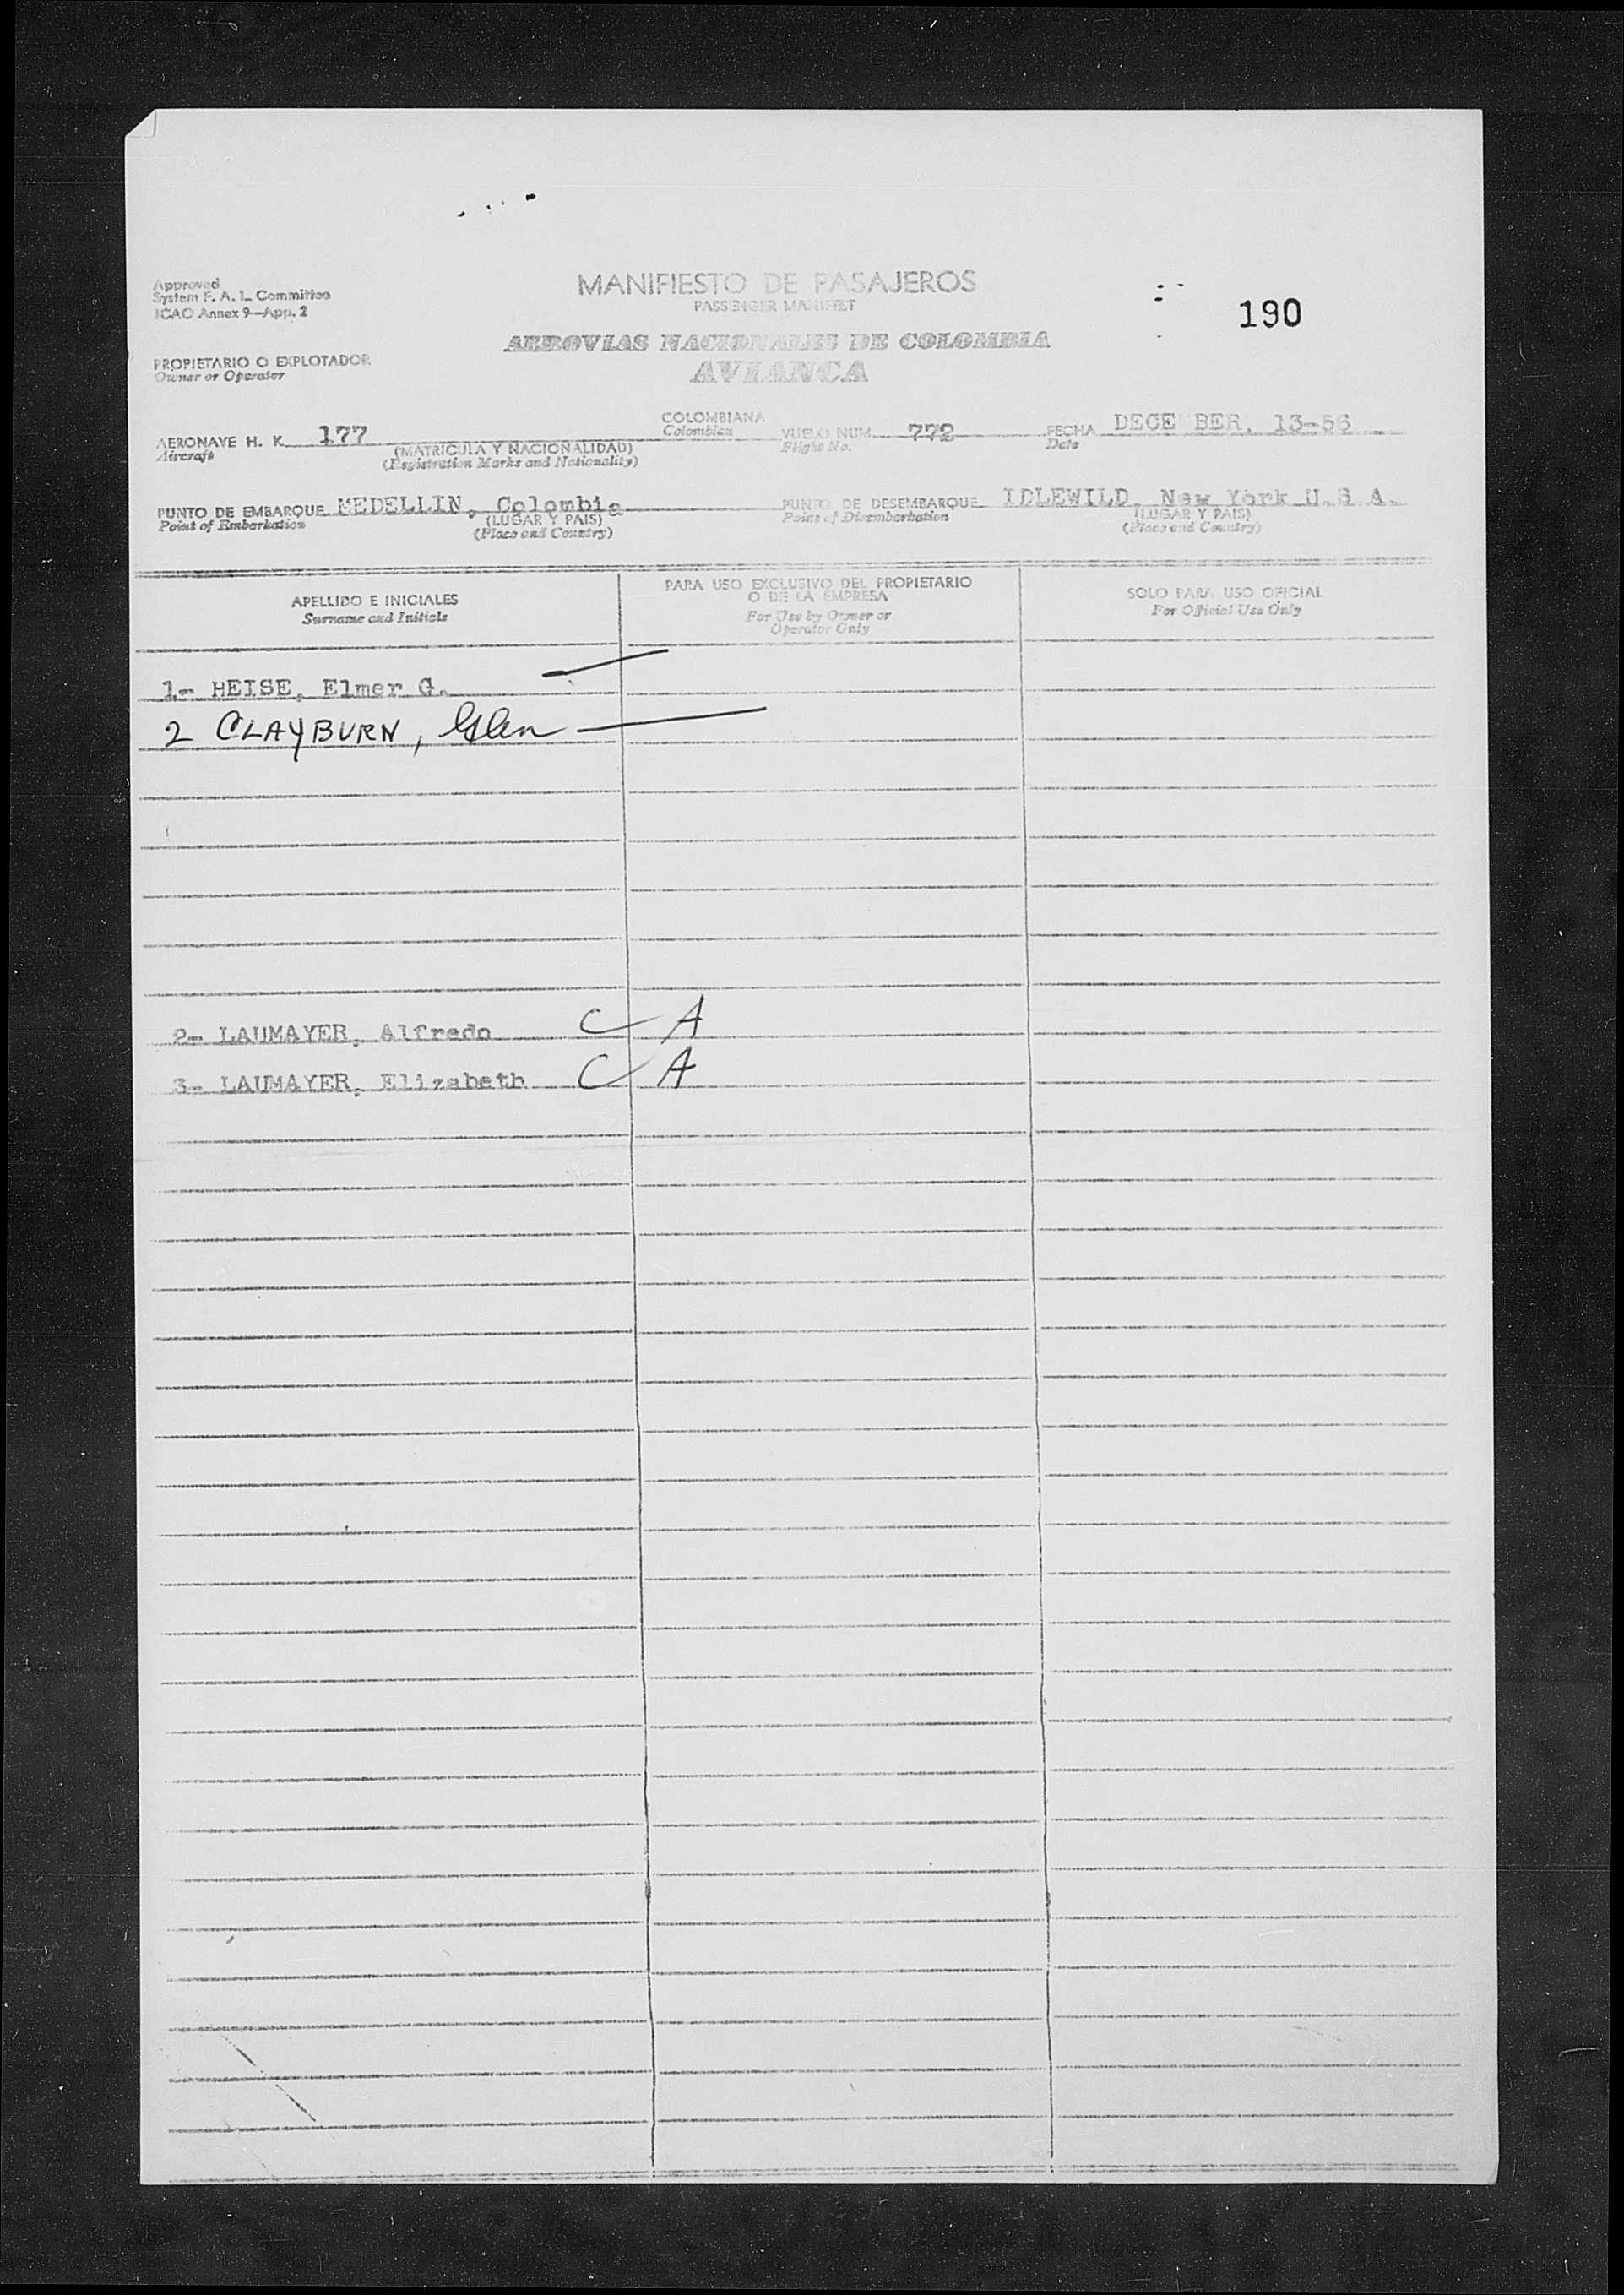 Approved
System F. A. L. Committee
ICAO Annex 9—App. 2
MANIFIESTO DE PASAJEROS
PASSENGER MANIFEST
190
AEROVIAS NACIONALES DE COLOMBIA
AVIANCA
PROPIETARIO O EXPLOTADOR
Owner or Operator
AERONAVE H. K. 177 COLOMBIANA VUELO NUM. 772 FECHA DECE BER, 13-56
Aircraft (MATRICULA Y NACIONALIDAD) Colombian Flight No. Date
(Registration Marks and Nationality)
PUNTO DE EMBARQUE MEDELLIN, Colombia PUNTO DE DESEMBARQUE IDLEWILD, New York U.S A.
Point of Embarkation (LUGAR Y PAIS) Point of Disembarkation (LUGAR Y PAIS)
(Place and Country) (Place and Country)
APELLIDO E INICIALES
Surname and Initials
PARA USO EXCLUSIVO DEL PROPIETARIO
O DE LA EMPRESA
For Use by Owner or
Operator Only
SOLO PARA USO OFICIAL
For Official Use Only
1- HEISE, Elmer G.
2 CLAYBURN, Glen
2- LAUMAYER, Alfredo C A
3- LAUMAYER, Elizabeth C A